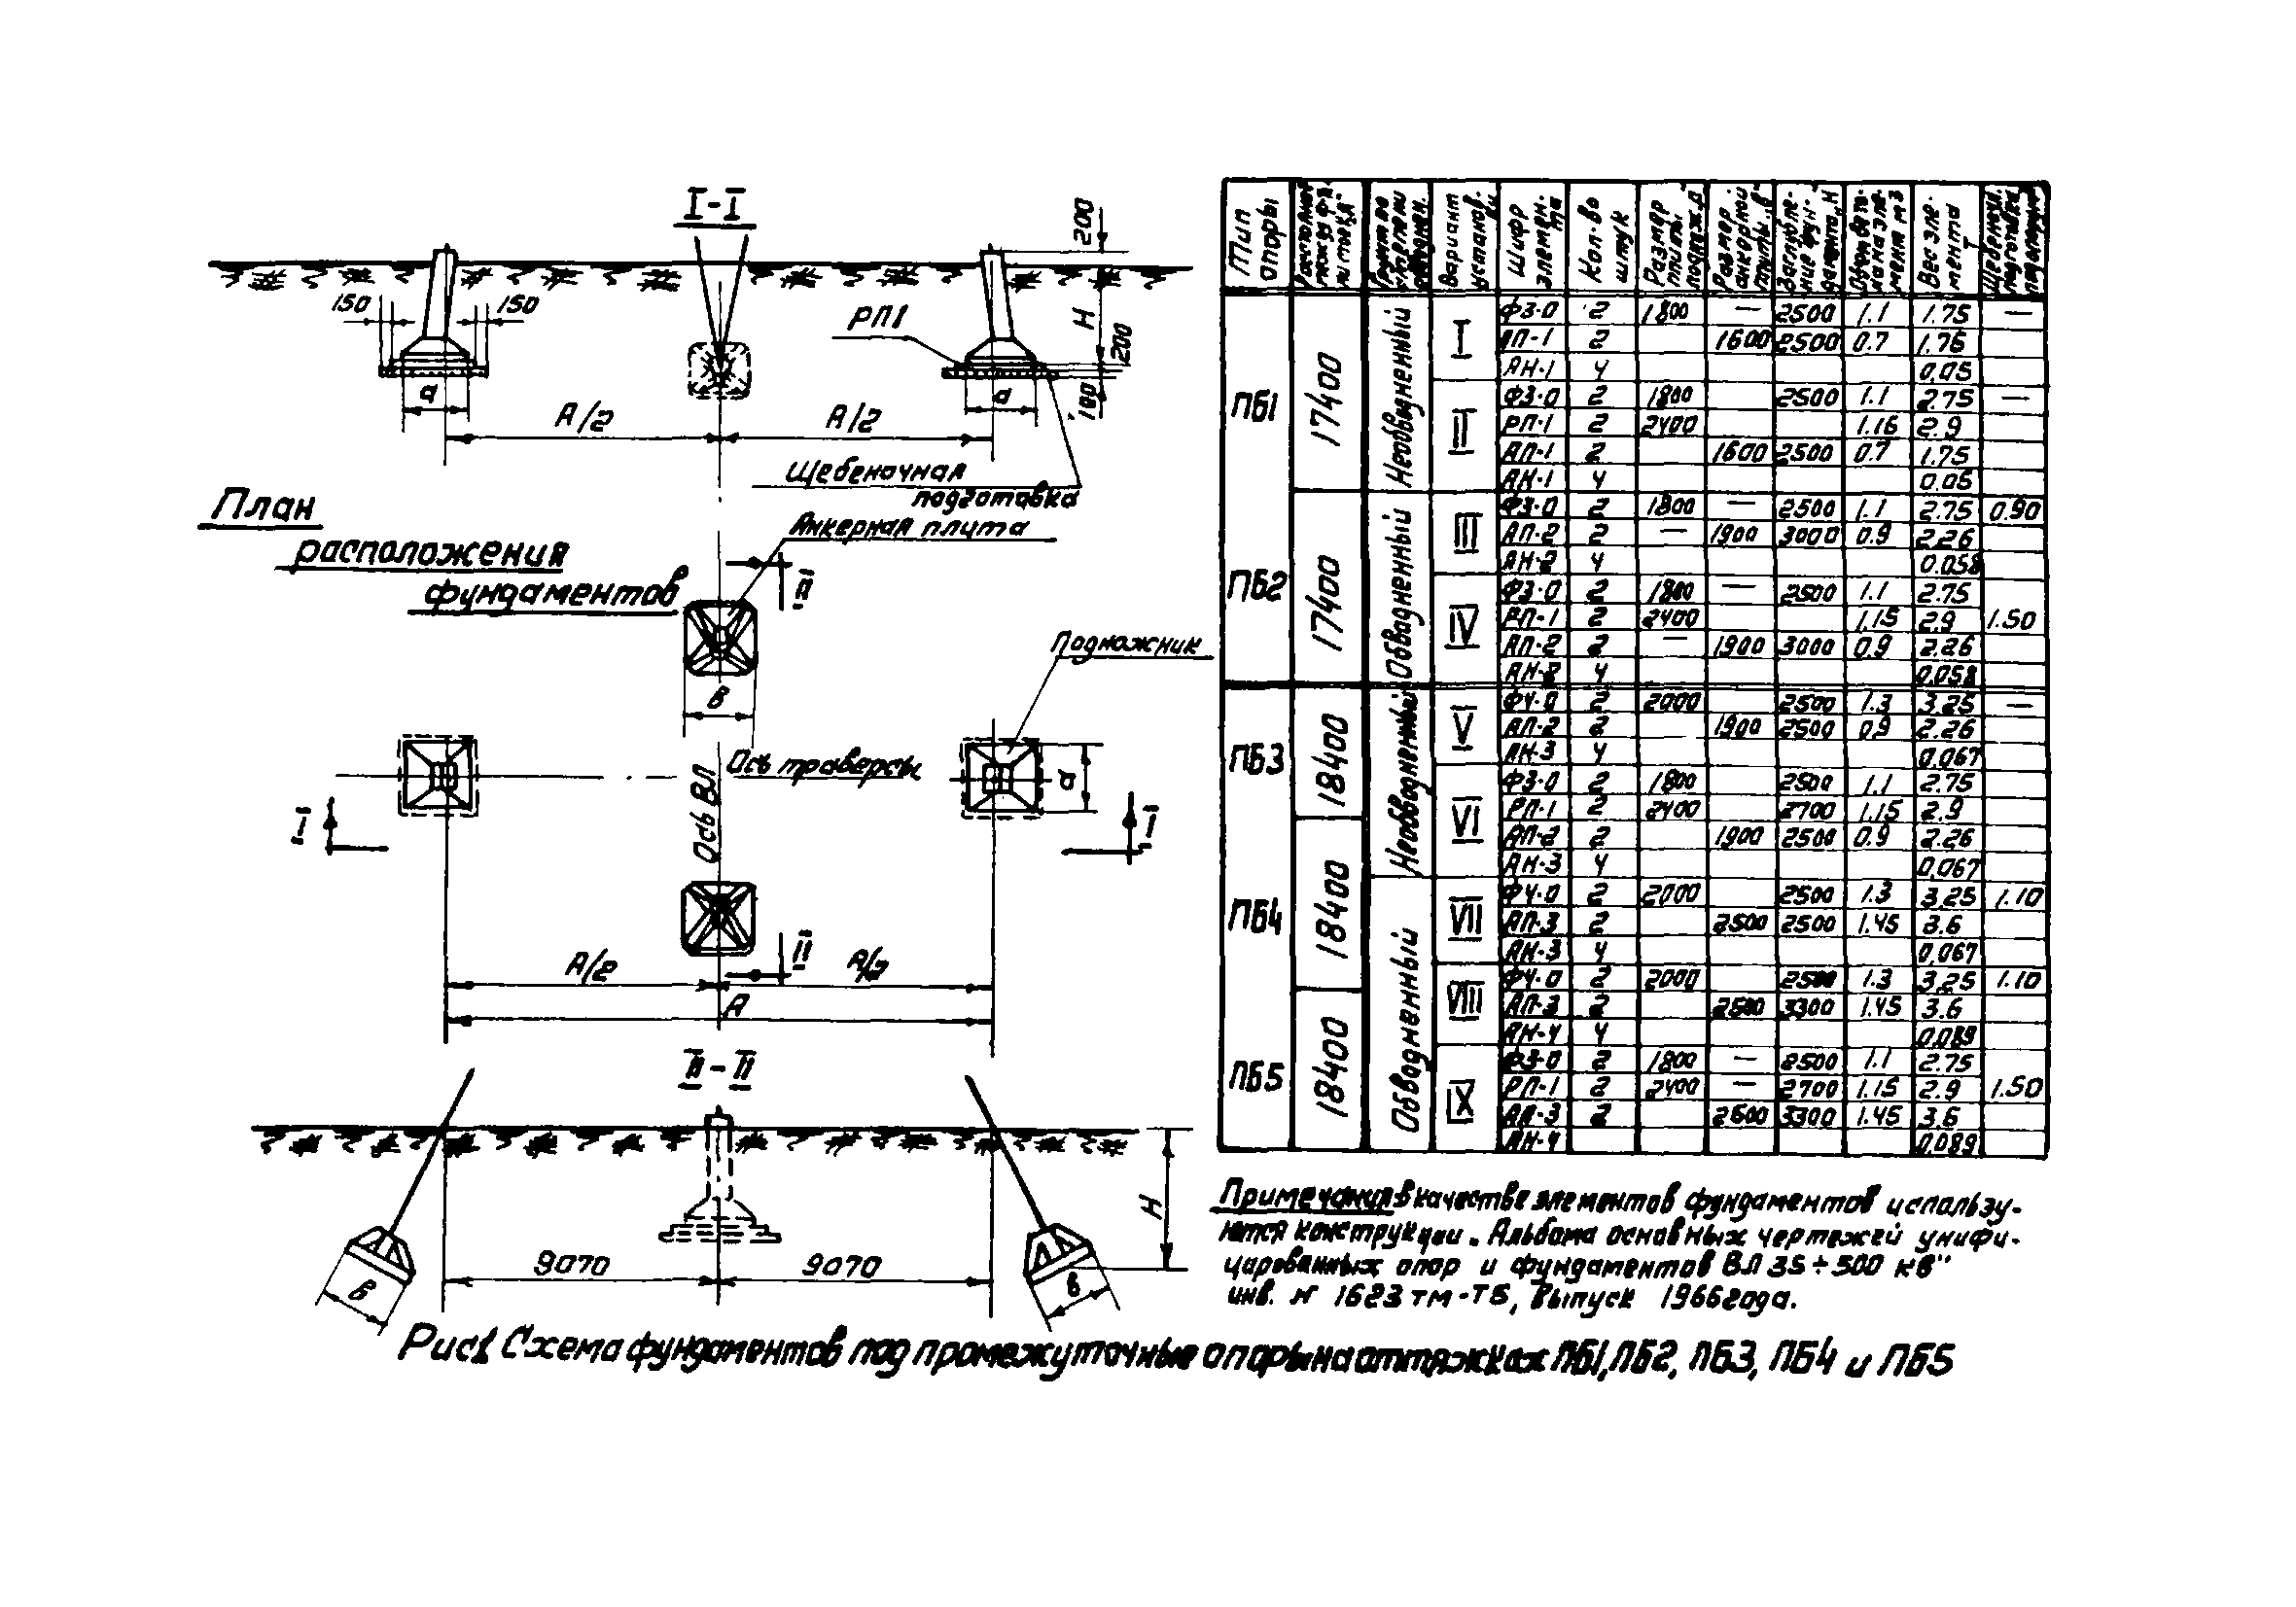 I-I
200
150
150
РП1
Н
200
100
а
а
А/2
А/2
Щебеночная
подготовка
План
расположения
фундаментов
Анкерная плита
II
Подножник
В
Ось траверсы
Ось ВЛ
а
I
I
II
А/2
А/2
А
II-II
Н
9070
9070
В
в
Тип опоры
Вариант установ.
Шифр элемен-та
Кол-во штук
Размер плиты
Размер анкерной плиты „в"
Вес эле-мента т
ПБ1 17400 Необводненный
I Ф3-0 2 1800 — 2500 1.1 1.75 —
АП-1 2 1600 2500 0.7 1.76
АН-1 4 0,05
II Ф3-0 2 1800 2500 1.1 2.75 —
РП-1 2 2400 1.16 2.9
АП-1 2 1600 2500 0.7 1.75
АН-1 4 0.05
ПБ2 17400 Обводненный
III Ф3-0 2 1800 — 2500 1.1 2.75 0.90
АП-2 2 — 1900 3000 0.9 2.26
АН-2 4 0.058
IV Ф3-0 2 1800 — 2500 1.1 2.75
РП-1 2 2400 1.15 2.9 1.50
АП-2 2 — 1900 3000 0.9 2.26
АН-2 4 0,058
ПБ3 18400 Необводненный
V Ф4-0 2 2000 2500 1.3 3.25 —
АП-2 2 1900 2500 0,9 2.26
АН-3 4 0.067
VI Ф3-0 2 1800 2500 1.1 2.75
РП-1 2 2400 2700 1.15 2.9
АП-2 2 1900 2500 0.9 2.26
АН-3 4 0,067
ПБ4 18400 Обводненный
VII Ф4-0 2 2000 2500 1.3 3,25 1.10
АП-3 2 2500 2500 1.45 3.6
АН-3 4 0,067
VIII Ф4-0 2 2000 2500 1.3 3,25 1.10
АП-3 2 2500 3300 1.45 3.6
АН-4 4 0,089
ПБ5 18400
IX Ф3-0 2 1800 — 2500 1.1 2.75
РП-1 2 2400 — 2700 1.15 2.9 1.50
АП-3 2 2600 3300 1.45 3.6
АН-4 0,089
Примечания: в качестве элементов фундаментов использу-
ются конструкции „Альбома основных чертежей унифи-
цированных опор и фундаментов ВЛ 35÷500 кв"
инв. № 1623 тм-Т5, Выпуск 1966 года.
Рис1 Схема фундаментов под промежуточные опоры на оттяжках ПБ1, ПБ2, ПБ3, ПБ4 и ПБ5